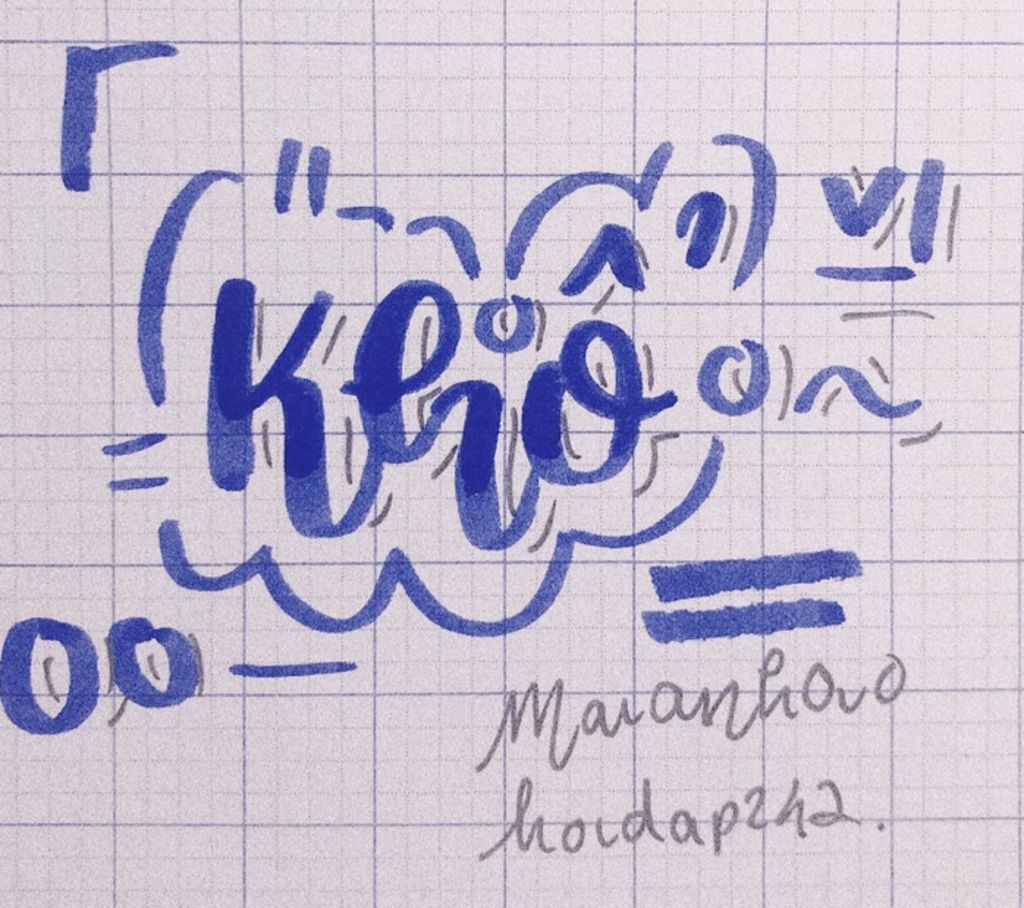 Khô
Maianh0v0
hoidap247.